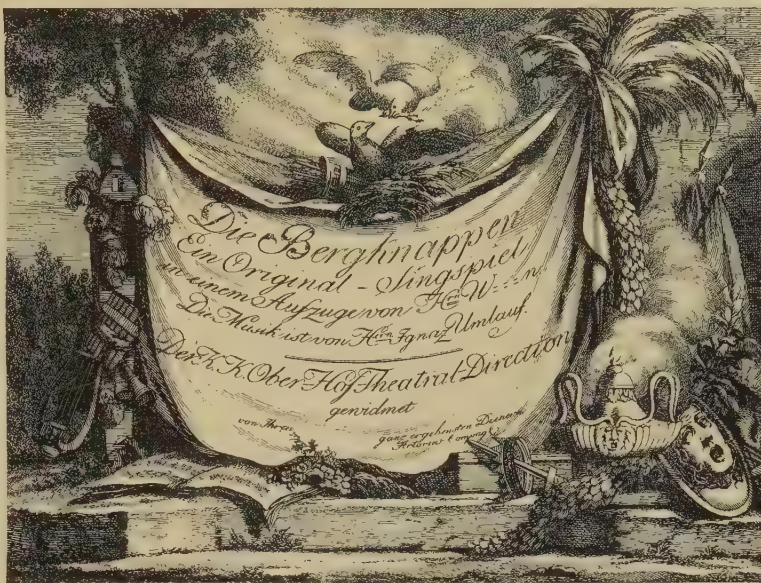 Die Bergknappen
Ein Original - Singspiel
in einem Aufzuge von Hrn W---n.
Die Musik ist von Hrn Ignaz Umlauf.
Der K. K. Ober-Hof Theatral-Direction
gewidmet
von Ihren ganz ergebensten Dienern
Artaria Comp.